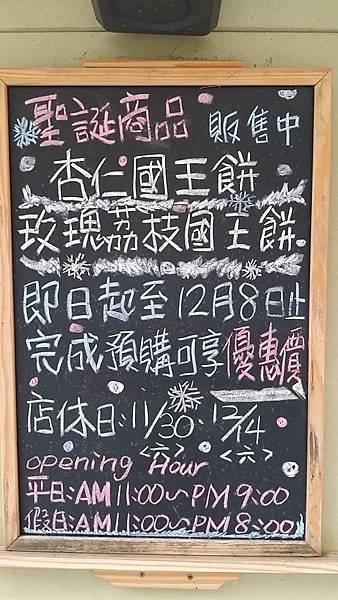 聖誕商品 販售中
杏仁國王餅
玫瑰荔枝國王餅
即日起至12月8日止
完成預購可享優惠價
店休日:11/30. 12/14
<六> <六>
opening Hour
平日:AM 11:00~PM 9:00
假日:AM 11:00~PM 8:00